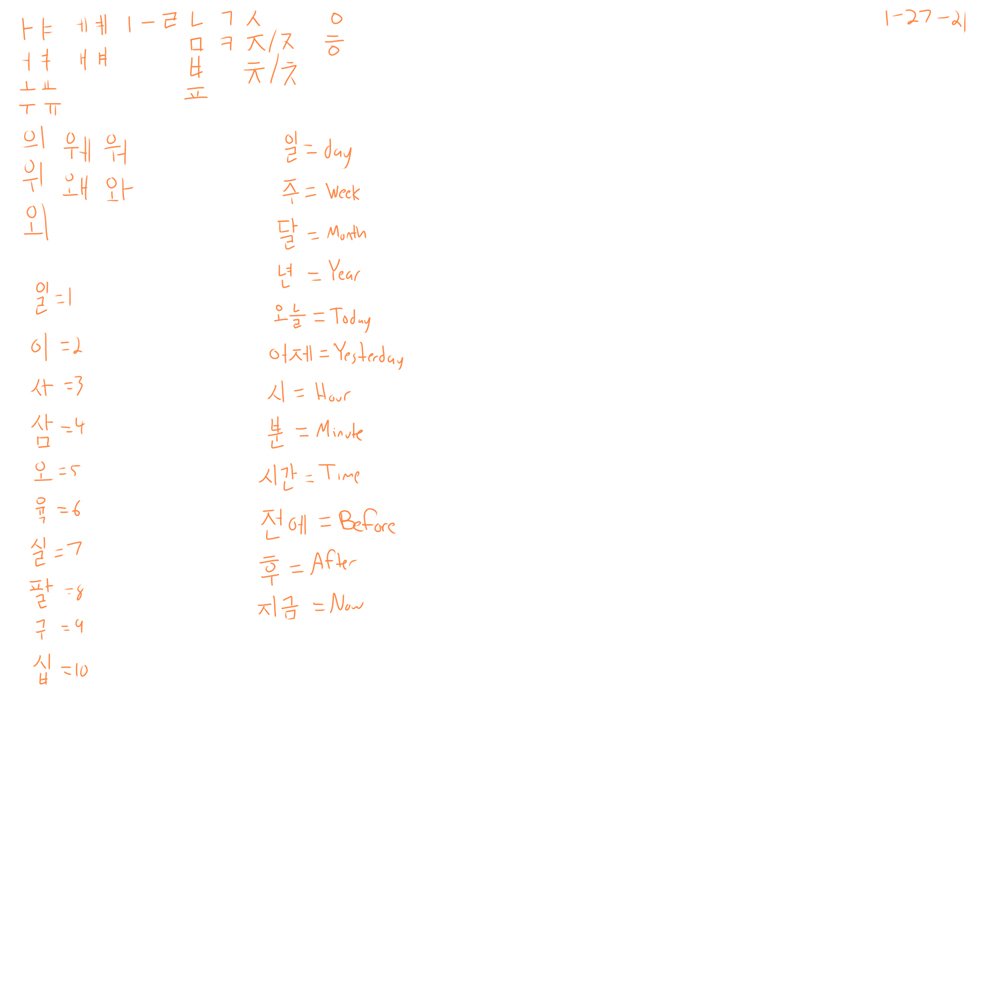 ㅏ ㅑ ㅔ ㅖ ㅣ ㅡ ㄹ ㄴ ㄱ ㅅ ㅇ 1-27-21
ㅓ ㅕ ㅐ ㅒ ㅁ ㅋ ㅈ/ㅈ ㅎ
ㅗ ㅛ ㅂ ㅊ/ㅊ
ㅜ ㅠ ㅍ
의 웨 워
위 왜 와
외
일=1
이=2
사=3
삼=4
오=5
육=6
실=7
팔=8
구=9
십=10
일=day
주=Week
달=Month
년=Year
오늘=Today
어제=Yesterday
시=Hour
분=Minute
시간=Time
전에=Before
후=After
지금=Now